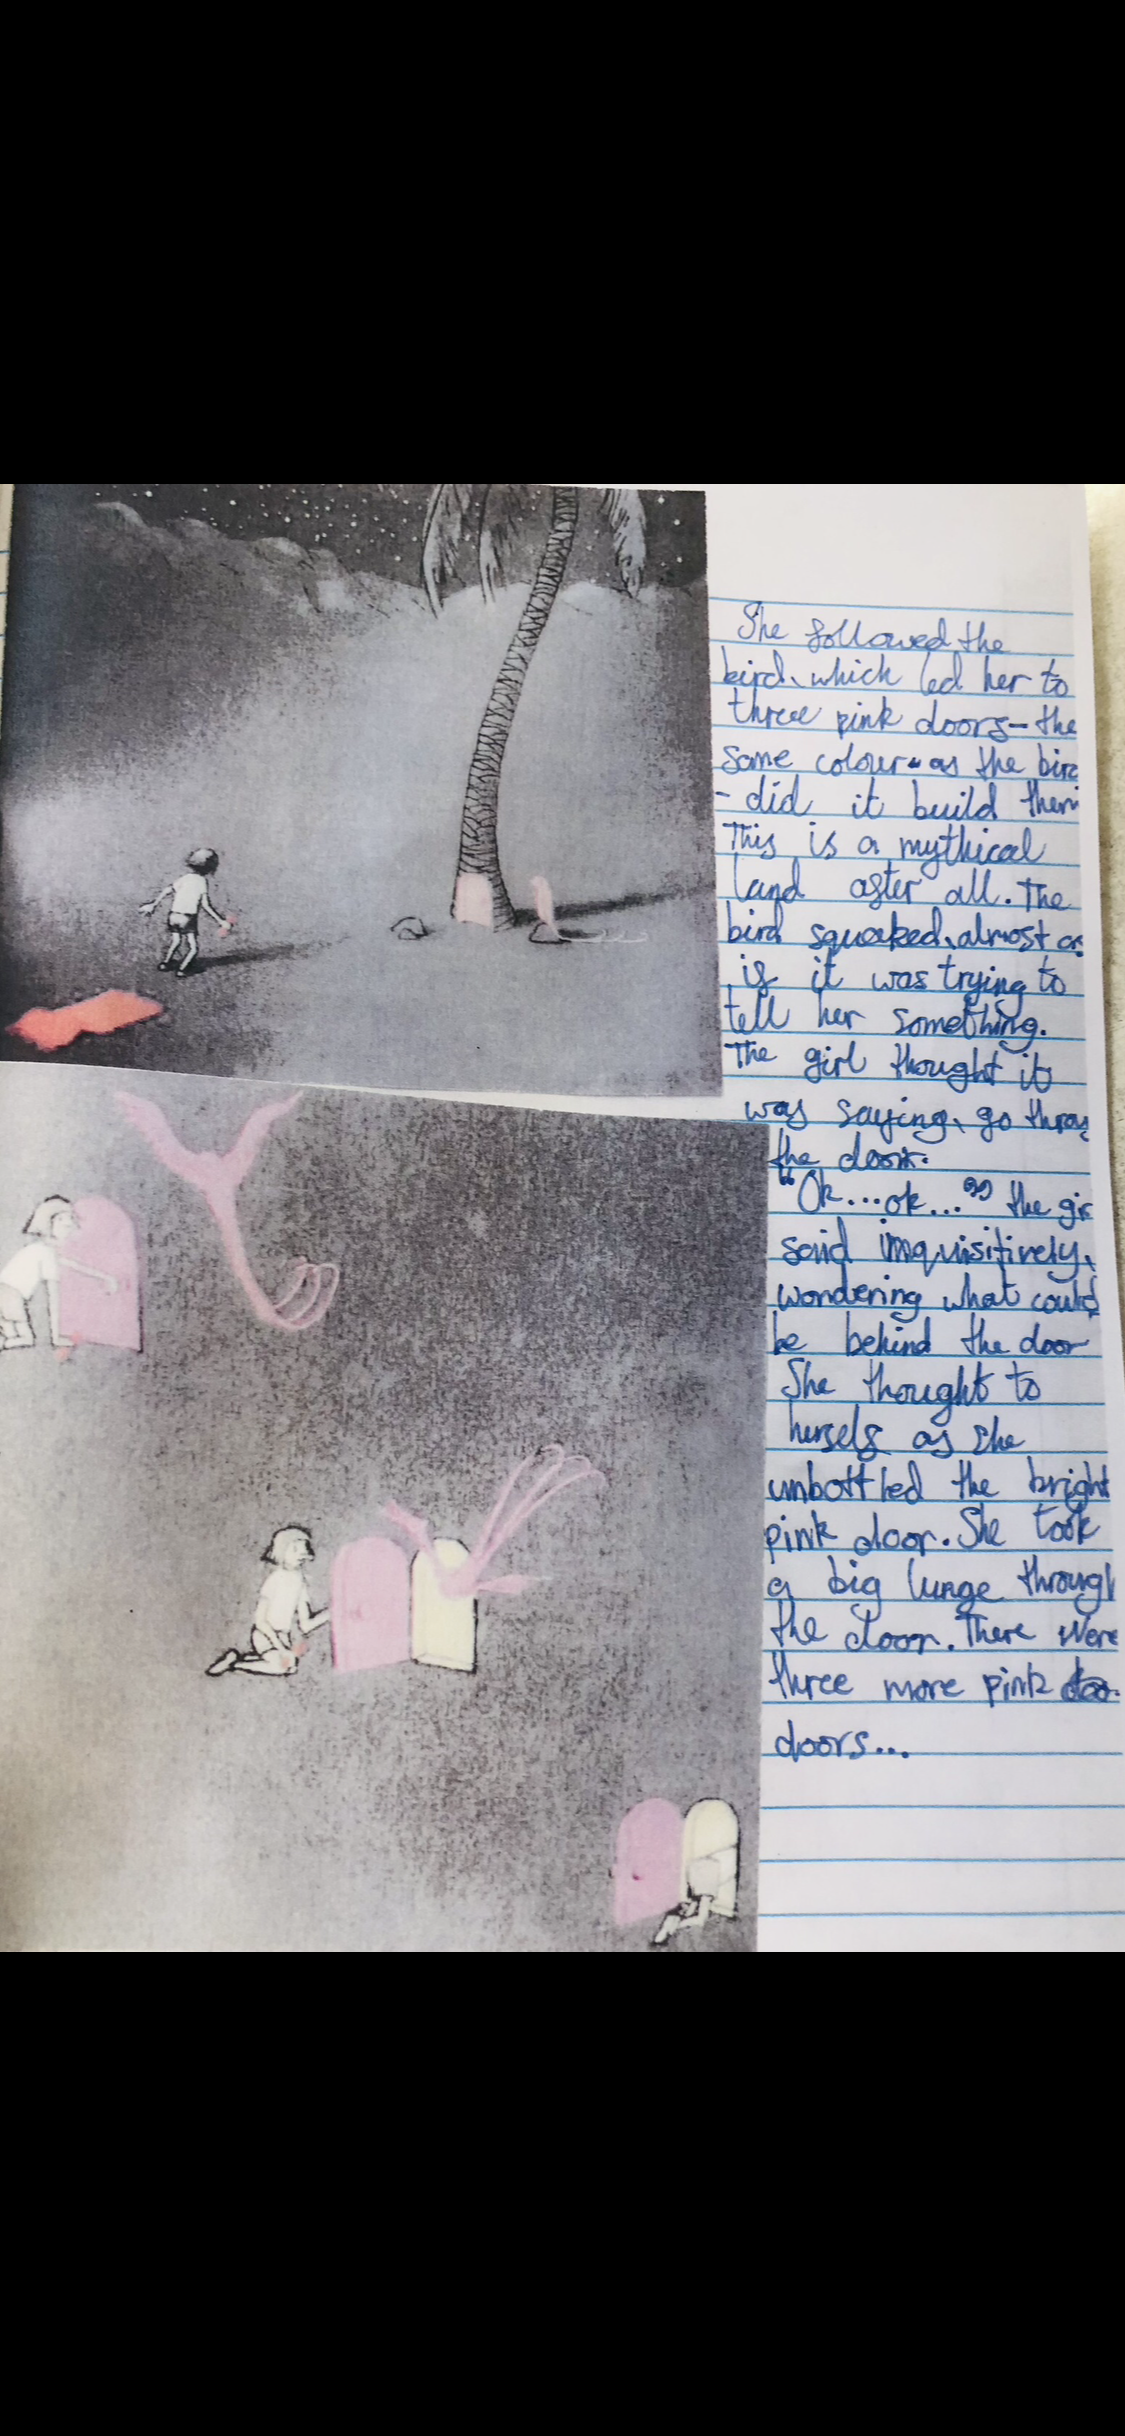 She followed the
bird, which led her to
three pink doors - the
same colour as the bird
- did it build them
This is a mythical
land after all. The
bird squeaked, almost as
if it was trying to
tell her something.
The girl thought it
was saying, go throu
the door.
"Ok...ok..." the gir
said inquisitively,
wondering what could
be behind the door
She thought to
herself as she
unbottled the bright
pink door. She took
a big lunge through
the door. There were
three more pink
doors...